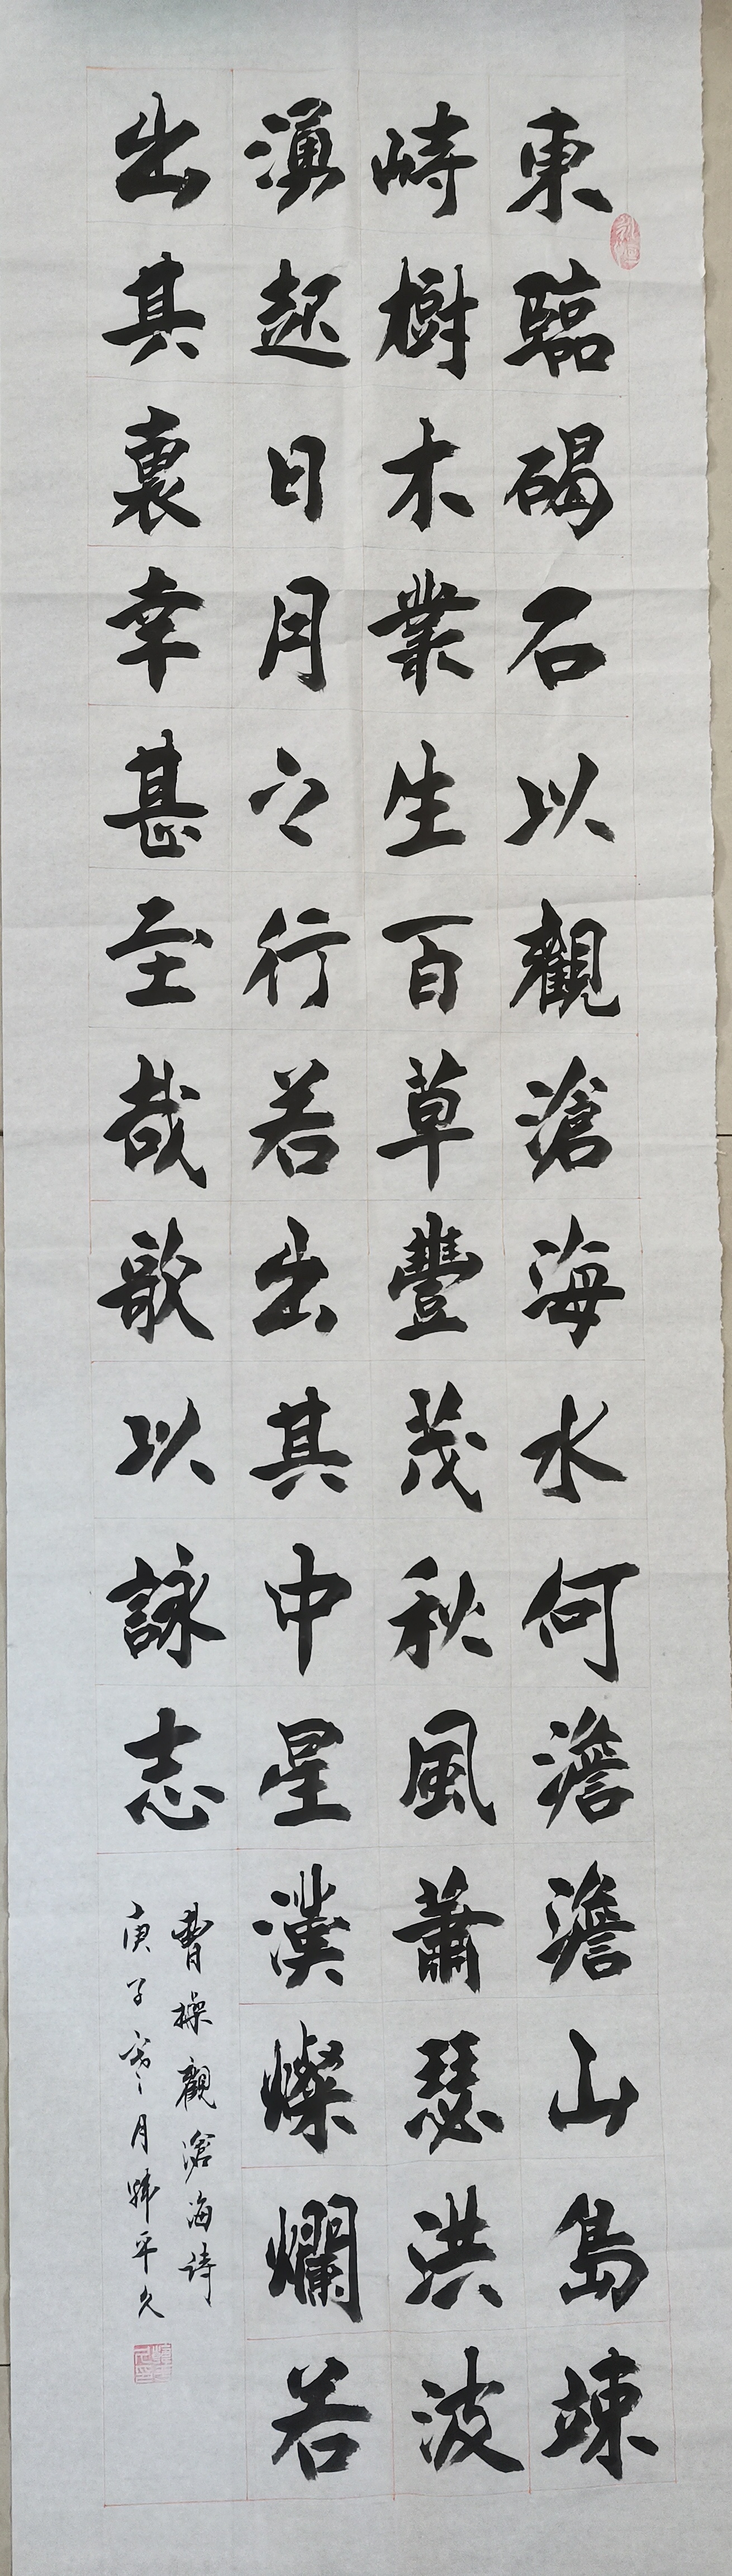 東臨碣石以觀滄海水何澹澹山島竦
峙樹木叢生百草豐茂秋風蕭瑟洪波
湧起日月之行若出其中星漢燦爛若
出其裏幸甚至哉歌以詠志
曹操觀滄海詩
庚子 月 平久